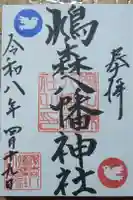 奉拝
鳩森八幡神社
令和八年 四月十九日